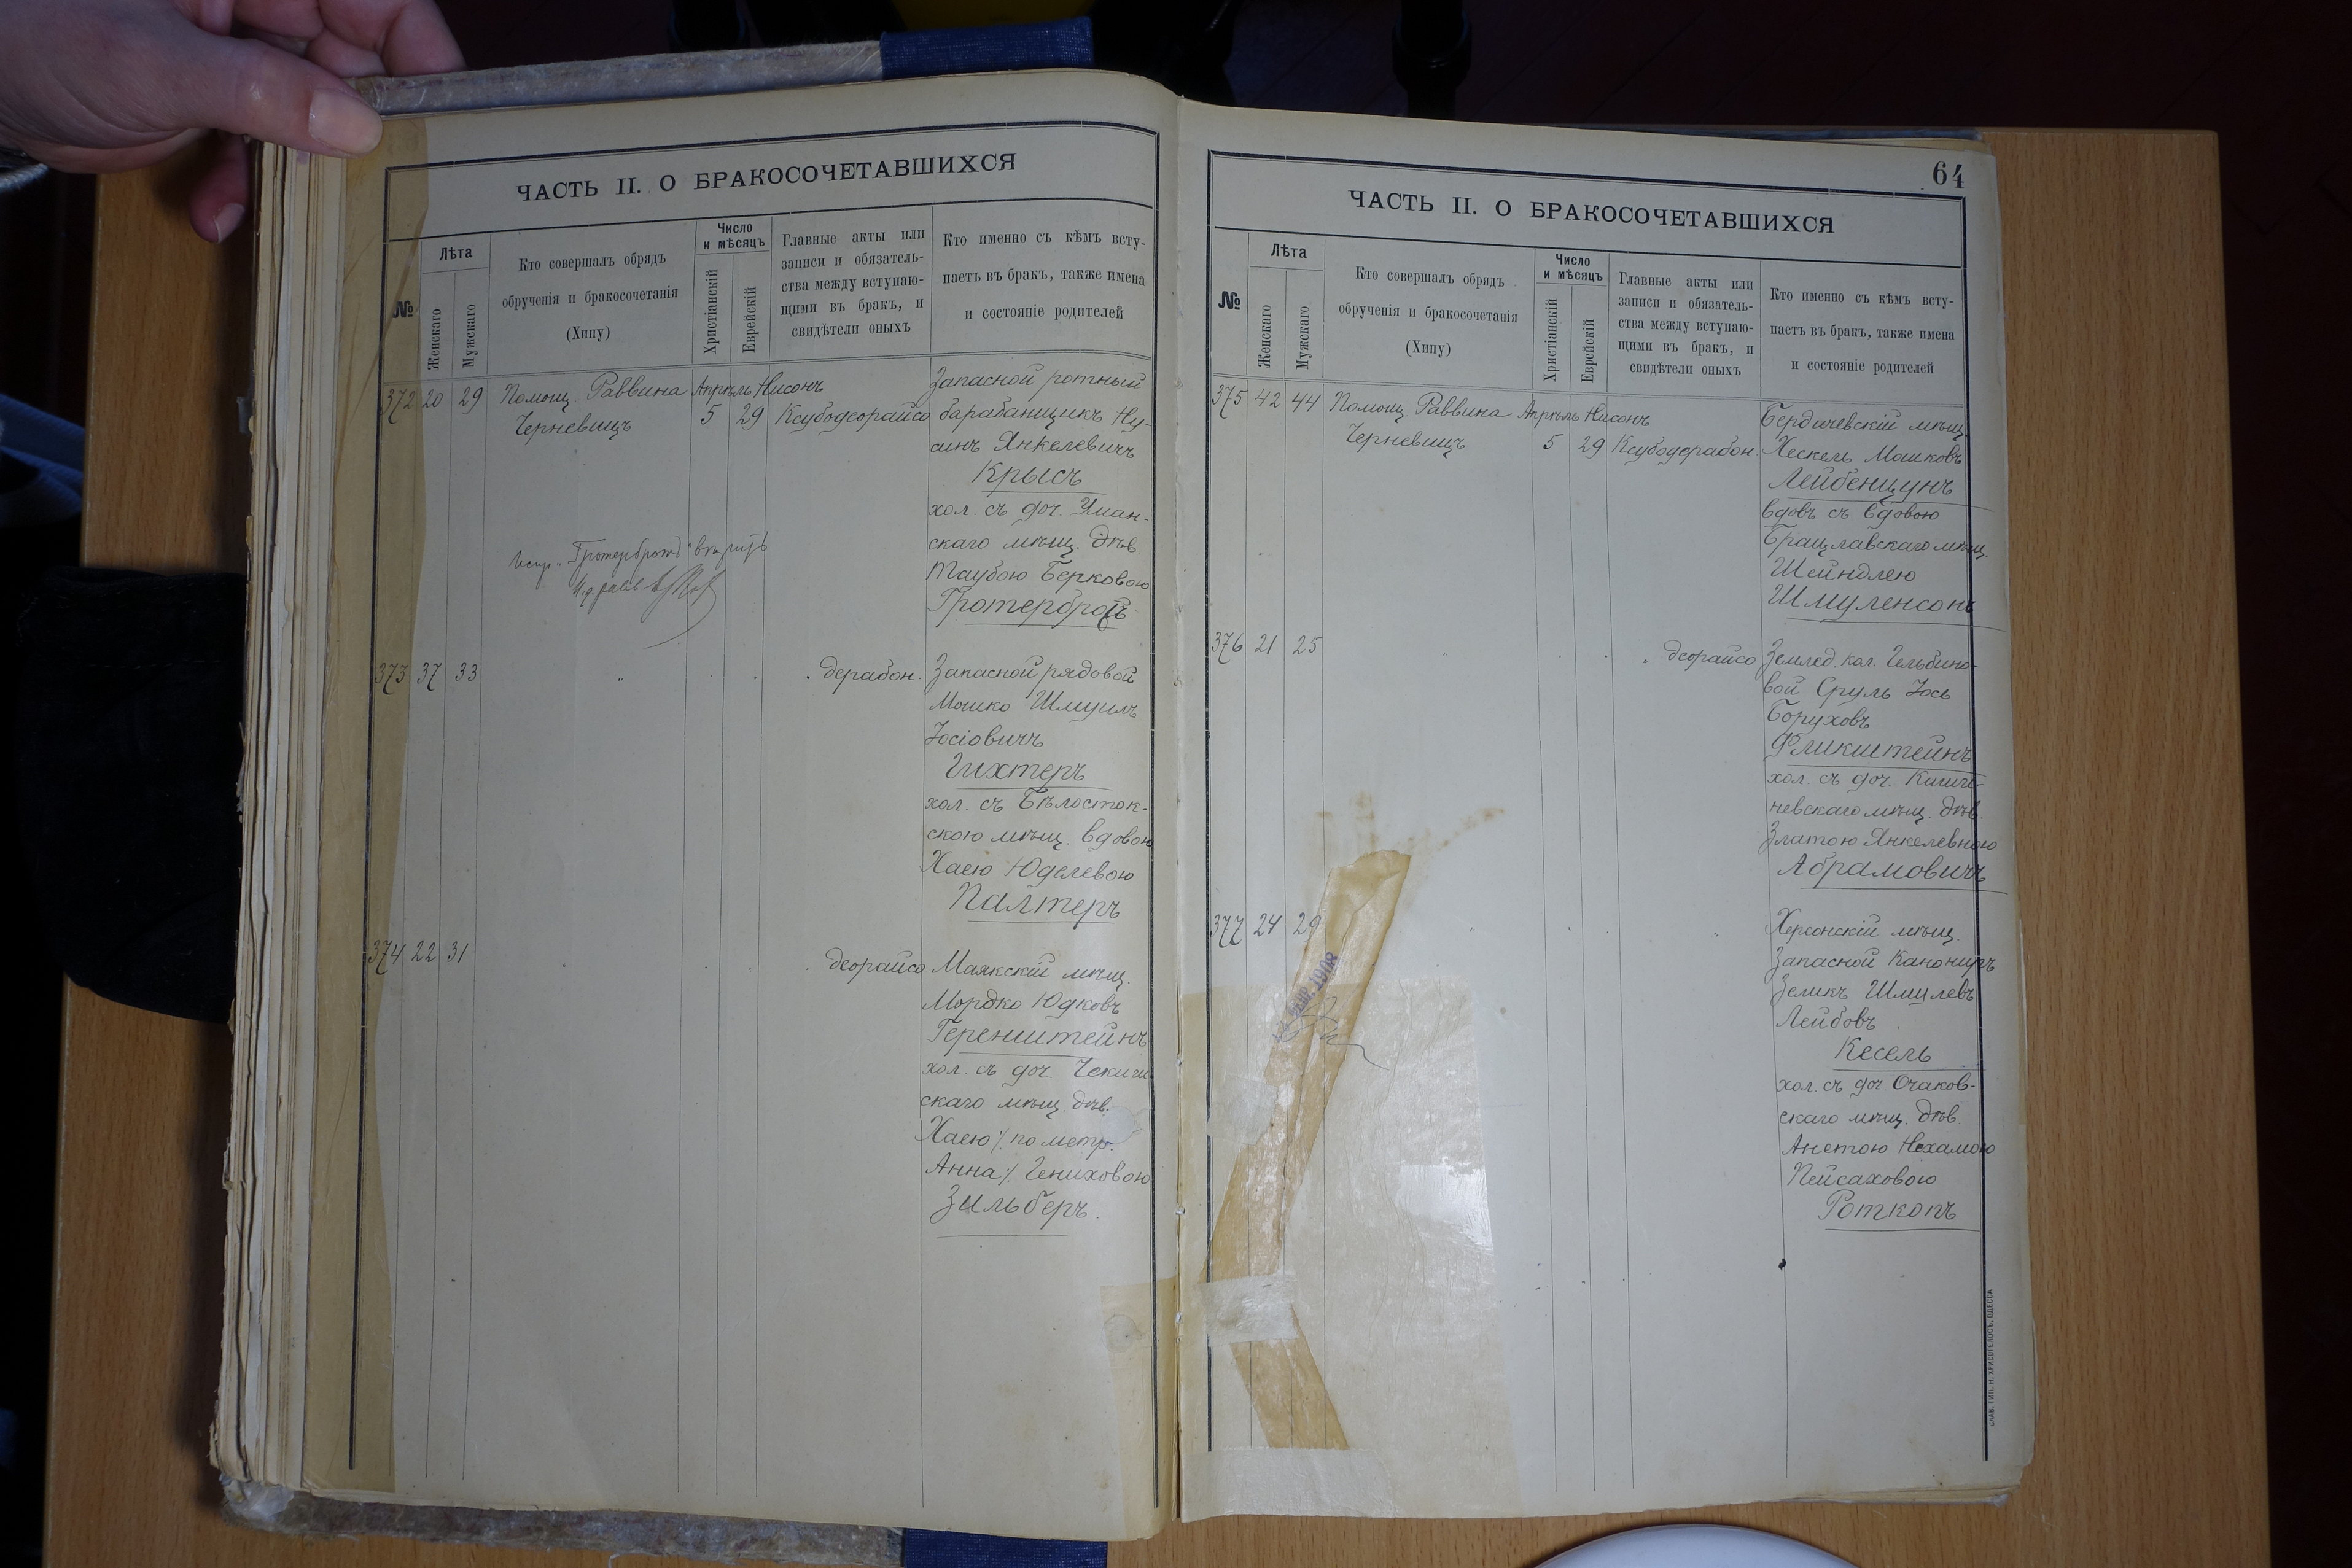 ЧАСТЬ II. О БРАКОСОЧЕТАВШИХСЯ
№
Лѣта
Женскаго
Мужскаго
Кто совершалъ обрядъ
обрученія и бракосочетанія
(Хипу)
Число
и мѣсяцъ
Христіанскій
Еврейскій
Главные акты или
записи и обязатель-
ства между вступаю-
щими въ бракъ, и
свидѣтели оныхъ
Кто именно съ кѣмъ всту-
паетъ въ бракъ, также имена
и состояніе родителей
372 20 29 Помощ. Раввина Апрѣль Нисонъ
Черневицъ 5 29 Ксубодеорайсо
Запасной ротный
барабанщикъ Ну-
синъ Янкелевичъ
Крысъ
хол. съ доч. Уман-
скаго мѣщ. дѣв
Таубою Берковою
Гротербротъ
испр. „Гротербротъ"
И. д. равв.
373 37 33 " . . . дерабон.
Запасной рядовой
Мошко Шмуилъ
Іосіовичъ
Гихтеръ
хол. съ Бѣлосток-
скою мѣщ. вдовою
Хаею Юделевою
Палтеръ
374 22 31 . . . деорайсо
Маякскій мѣщ.
Мордко Юдковъ
Геренштейнъ
хол. съ доч.
скаго мѣщ. дѣв.
Хаею /. по метр.
Анна /. Гениховою
Зильберъ.
64
ЧАСТЬ II. О БРАКОСОЧЕТАВШИХСЯ
№
Лѣта
Женскаго
Мужскаго
Кто совершалъ обрядъ
обрученія и бракосочетанія
(Хипу)
Число
и мѣсяцъ
Христіанскій
Еврейскій
Главные акты или
записи и обязатель-
ства между вступаю-
щими въ бракъ, и
свидѣтели оныхъ
Кто именно съ кѣмъ всту-
паетъ въ бракъ, также имена
и состояніе родителей
375 42 44 Помощ. Раввина Апрѣль Нисонъ
Черневицъ 5 29 Ксубодерабон.
Бердичевскій мѣщ.
Хескель Мошковъ
Лейбенцунъ
вдовъ съ вдовою
Брацлавскаго мѣщ.
Шейндлею
Шмуленсонъ
376 21 25 " . . . деорайсо
Землед. кол. Гельбино-
вой Сруль Іось
Боруховъ
Фликштейнъ
хол. съ доч. Кишине-
невскаго мѣщ. дѣв.
Златою Янкелевною
Абрамовичъ
377 24 29 . . .
Херсонскій мѣщ.
Запасной Канониръ
Зеликъ Шмулевъ
Лейбовъ
Кесель
хол. съ доч. Очаков-
скаго мѣщ. дѣв.
Анетою Нехамою
Пейсаховою
Роткопъ
1908
СЛАВ. ТИП. Н. ХРИСОГЕЛОСЪ, ОДЕССА